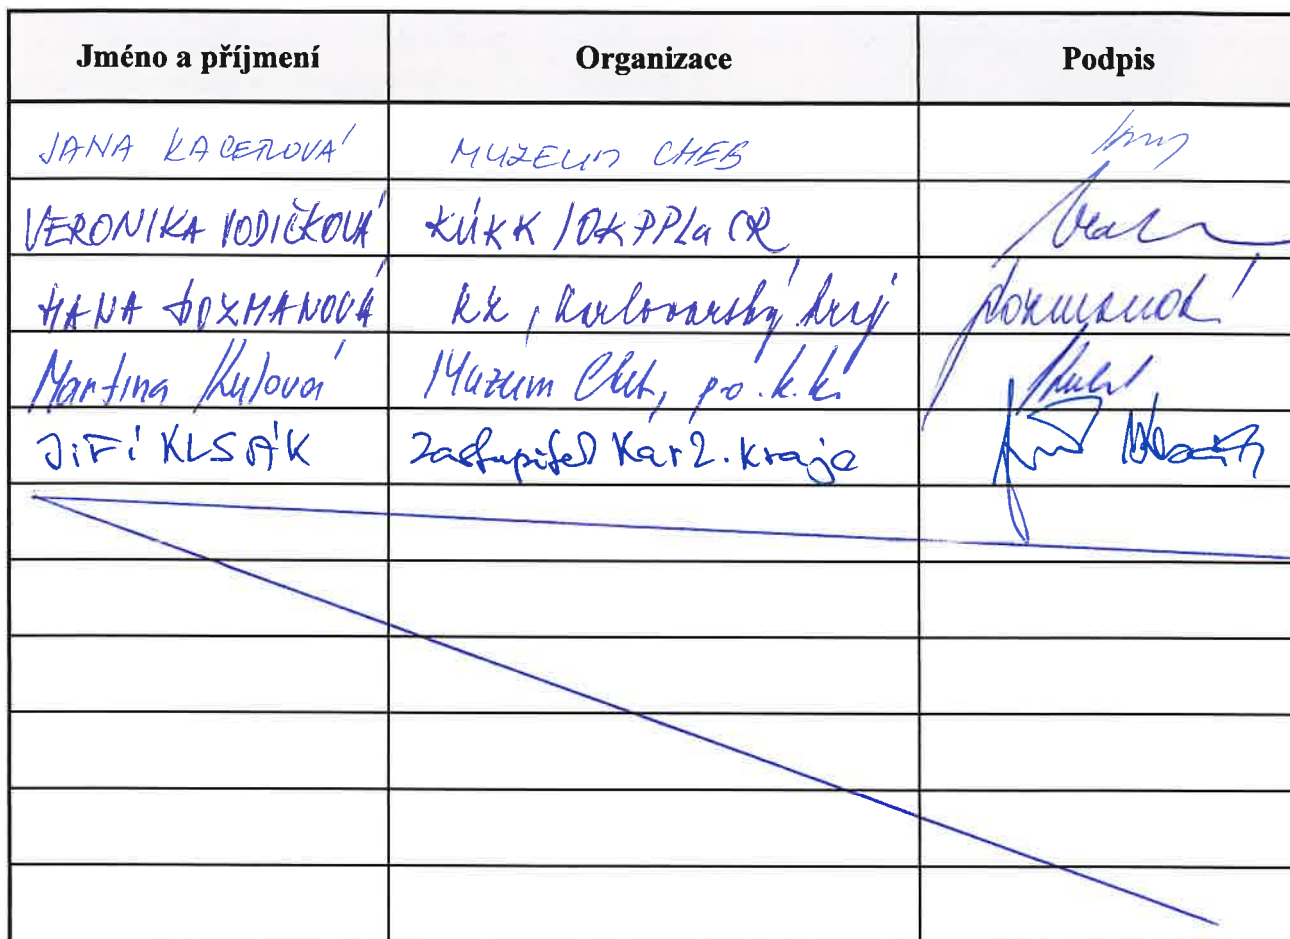 Jméno a příjmení Organizace Podpis
JANA KACEROVÁ MUZEUM CHEB
VERONIKA VODIČKOVÁ KÚKK /OKPPLa CR
HANA DOZMANOVÁ KK, Karlovarský kraj
Martina Kulová Muzeum Cheb, p.o. k.k.
JIŘÍ KLSÁK zastupitel Kar2. kraje